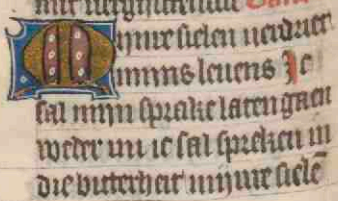 Mijnre sielen verdriet
mijns leuens Ic
sal mijn sprake laten gaen
weder mi ic sal spreken in
die bitterheit mijnre siele̅